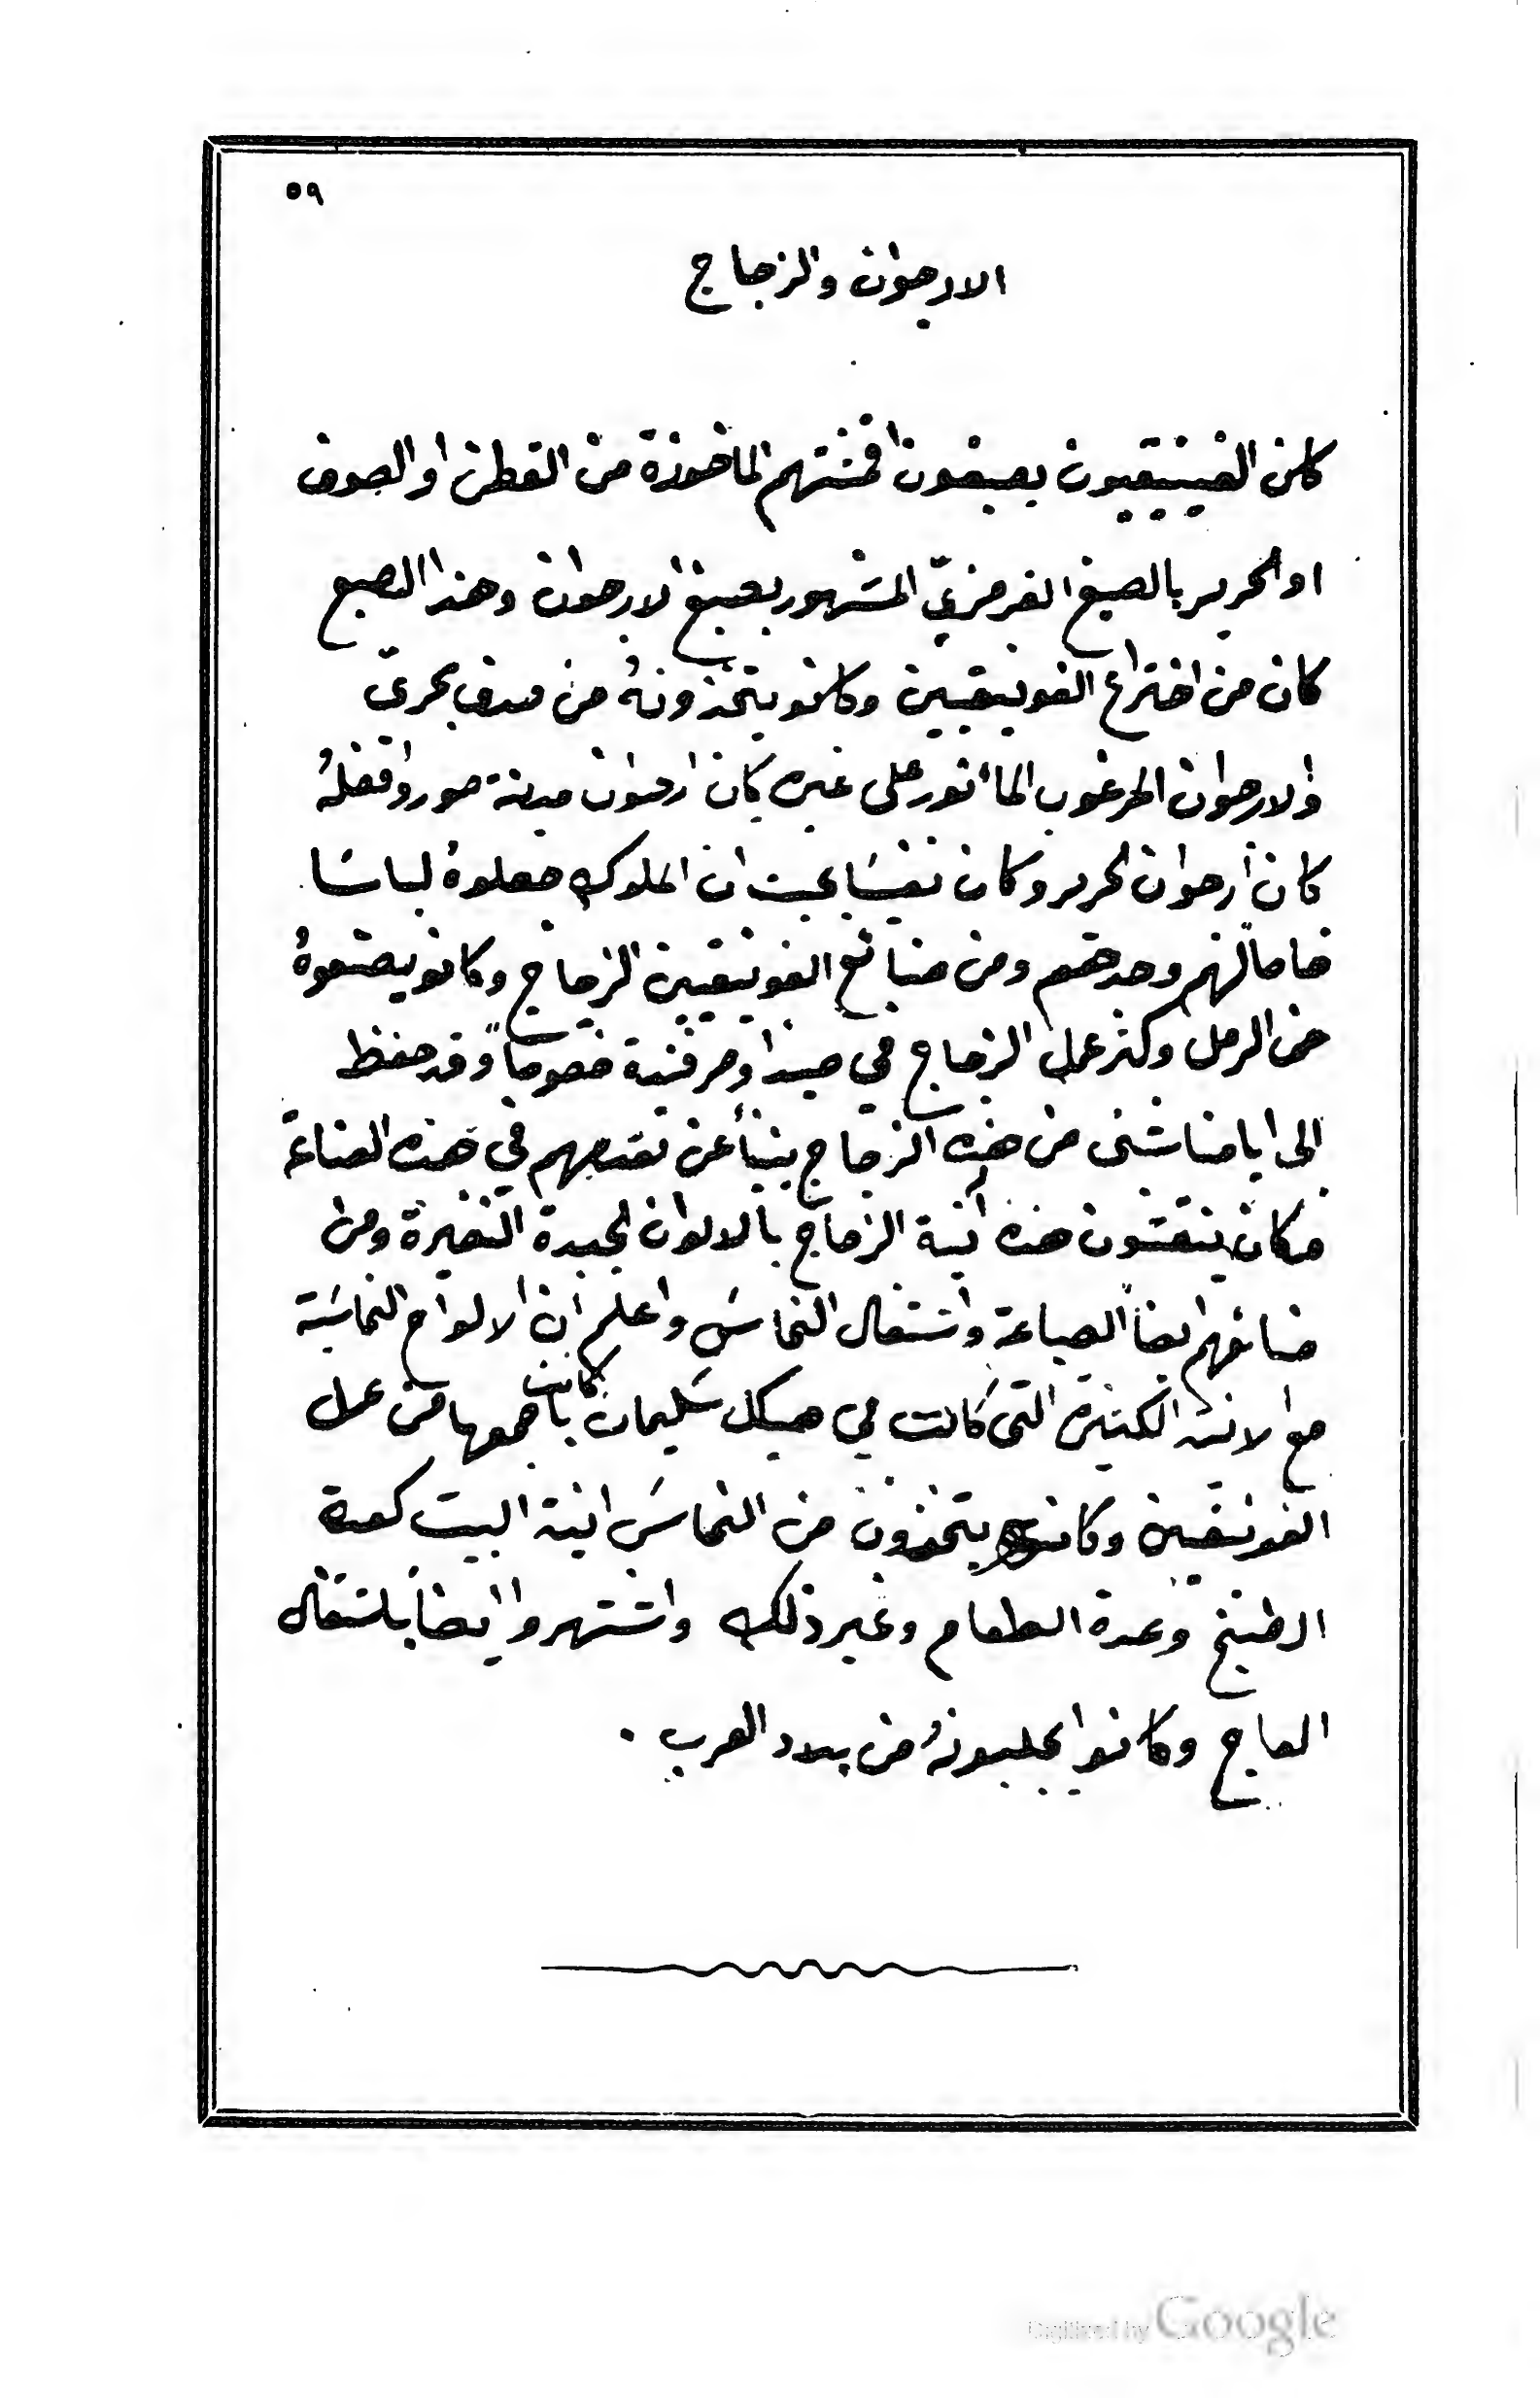 ٥٩
الارجوان والزجاج
كان الفينيقيون يصبغون اقمشتهم الماخوذة من القطن او الصوف
او الحرير بالصبغ القرمزيّ المشهور بصبغ الارجوان وهذا الصبع
كان من اختراع الفونيقيين وكانو يتخذونهُ من صدف بحريّ
والارجوان المرغوب المأثور على غيره كان ارجوان مدينة صور وافضلهُ
كان أرجوان الحرير وكان نفيسًا بحيث ان الملوك جعلوهُ لباسًا
خاصاً لهم وحدهم ومن صنائع الفونيقيين الزجاج وكانو يصنعوهُ
من الرمل وكثر عمل الزجاج في صيدا وصرفندة خصوصاً وقد حفظ
الى ايامنا شئى من هذه الزجاج ينبأ عن تقدمهم في هذه الصناعة
فكان ينقشون هذه آنية الزجاج بالالوان الجيدة النضيرة ومن
صنائعهم ايضاً الصياعة واشتغال النحاس واعلم ان الالواح النحاسية
مع الانية الكثيرة التي كانت في هيكل سليمان كانت باجمعها من عمل
الفونيقيين وكانو يتخذون من النحاس انية البيت كعدة
الطبخ وعدة الطعام وغير ذلك واشتهروا ايضاً بلشتغال
العاج وكانوا يجلبونهُ من بلاد العرب .
Digitized by Google